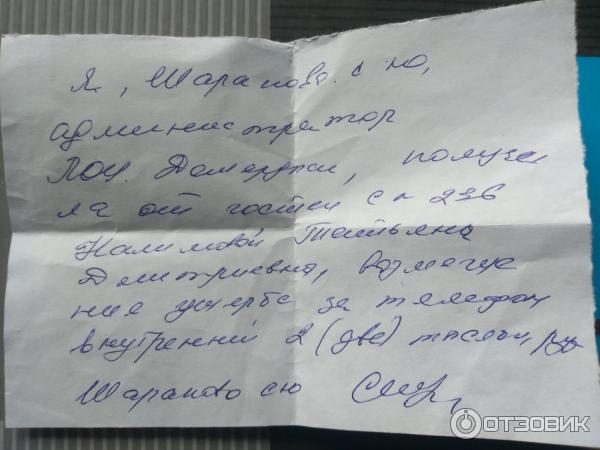 Я, Шарапова с ю,
администратор
ЛОЦ. Дамерджи, получи
ла от гостьи с к 236
Налимовой Татьяна
Дмитриевна, возмеще
ние ущерба за телефон
внутренний 2 (две) тысячи, руб
Шарапова с ю
ОТЗОВИК